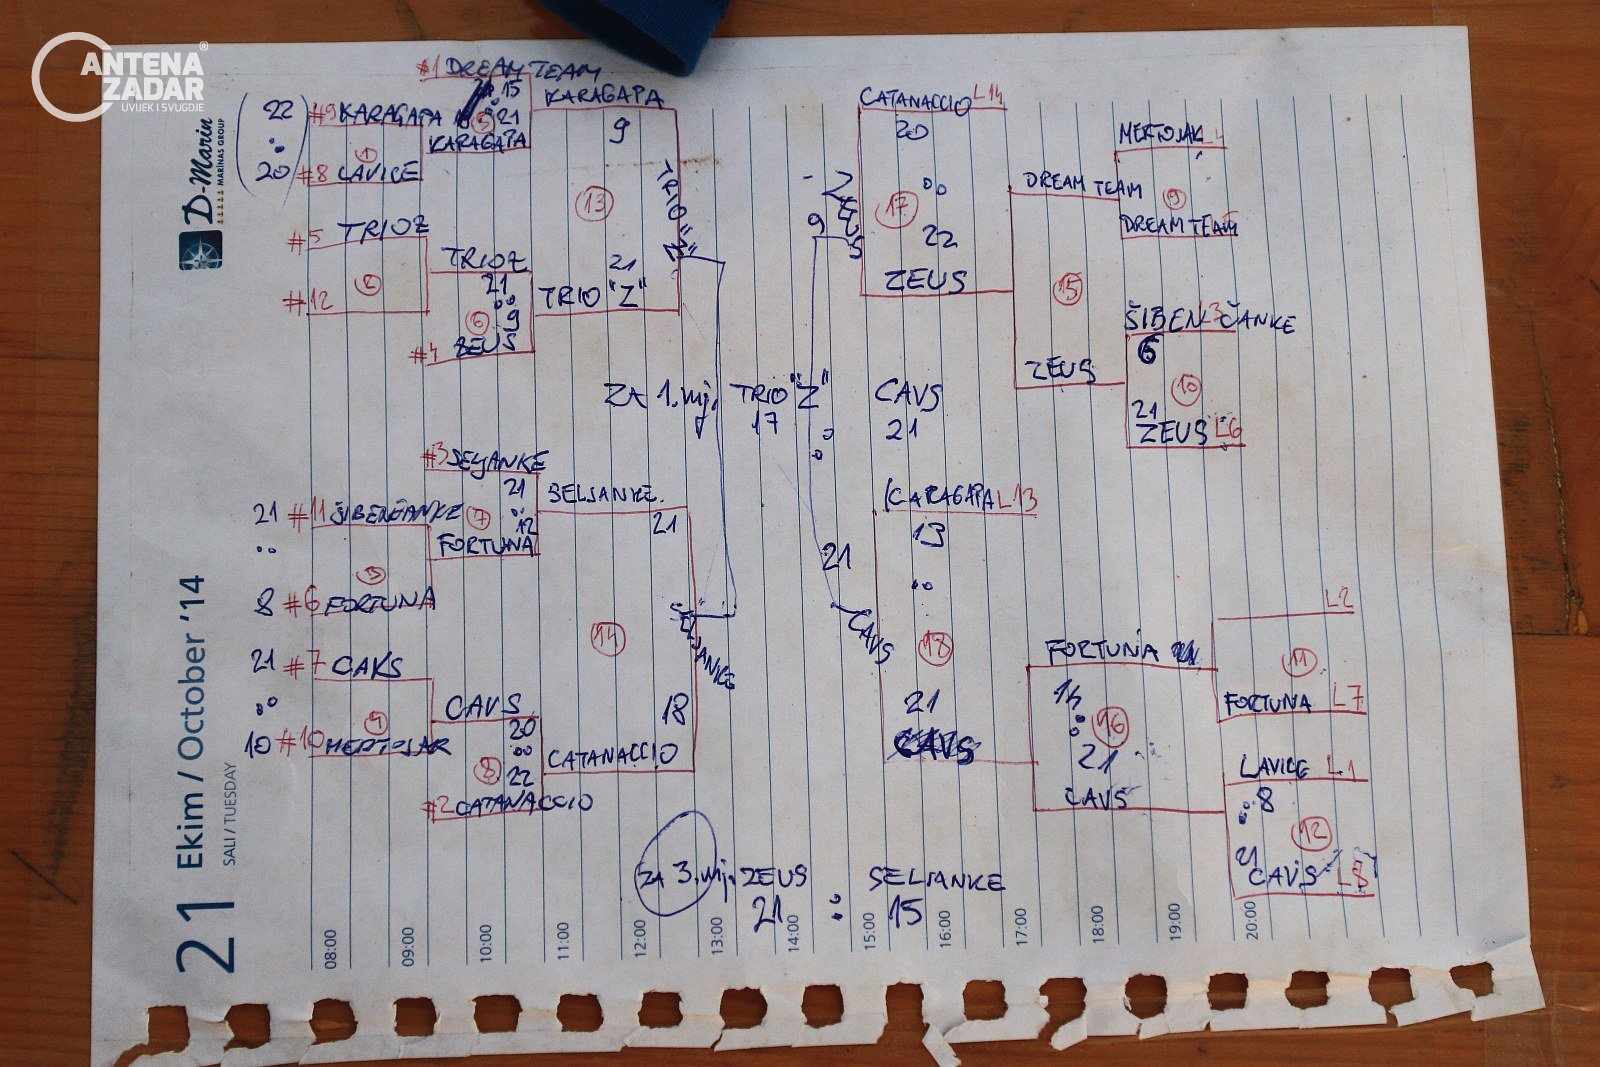 ANTENA ZADAR®
UVIJEK I SVUGDJE
D-Marin
MARINAS GROUP
21 Ekim / October '14
SALI / TUESDAY
#1 DREAM TEAM
15
:
21
5
KARAGAPA
22
:
20
#9 KARAGAPA
1
#8 LAVICE
#5 TRIOZ
2
#12
TRIOZ
21
:
9
6
#4 ZEUS
KARAGAPA
9
13
21
TRIO "Z"
TRIO "Z"
#3 SELJANKE
21
:
12
7
FORTUNA
21
:
8
#11 ŠIBENČANKE
3
#6 FORTUNA
21
:
10
#7 CAKS
4
#10
CAVS
20
:
22
8
#2 CATANACCIO
SELJANKE
21
14
18
CATANACCIO
SELJANKE
ZA 1. mj. TRIO "Z" : CAVS
17 21
ZA 3. mj. ZEUS : SELJANKE
21 : 15
CATANACCIO L14
20
:
22
17
ZEUS
ZEUS
9
21
CAVS
KARAGAPA L13
13
:
21
18
CAVS
DREAM TEAM
15
ZEUS
9
DREAM TEAM
ŠIBENČANKE L3
6
10
21
ZEUS L6
FORTUNA
14
:
21
16
CAVS
L2
11
FORTUNA L7
LAVICE L1
8
:
21
12
CAVS L8
08:00
09:00
10:00
11:00
12:00
13:00
14:00
15:00
16:00
17:00
18:00
19:00
20:00